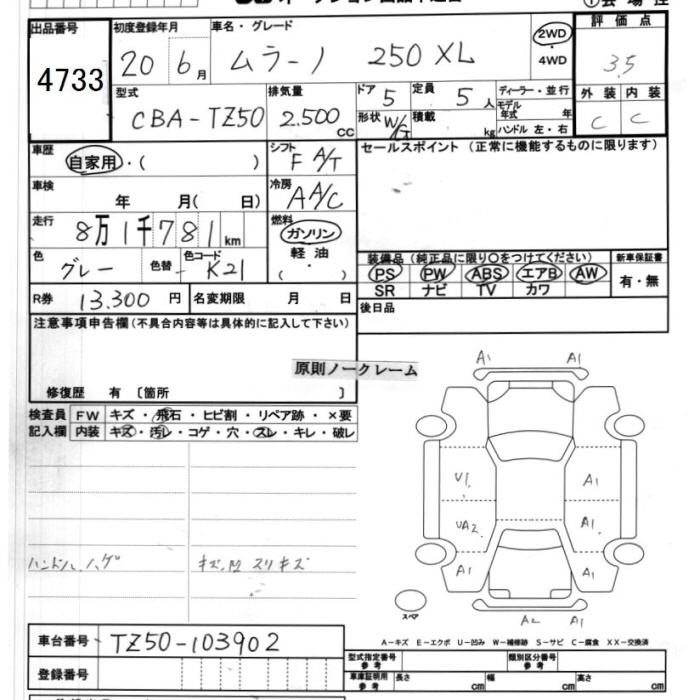 出品番号 初度登録年月 車名・グレード 2WD ・ 4WD 評価点
4733 20 6月 ムラーノ 250 XL 3.5
型式 排気量 ドア 5 定員 5人 ディーラー・並行 外装 内装
CBA-TZ50 2.500 CC 形状 W/G 積載 kg モデル年式 年 C C
ハンドル 左・右
車歴 自家用・( ) シフト F A/T セールスポイント (正常に機能するものに限ります)
車検 年 月( 日) 冷房 A A/C
走行 8万1千781km 燃料 ガソリン 軽油 ・( )
色 グレー 色替 - 色コード K21 装備品 (純正品に限り○をつけてください) 新車保証書
PS PW ABS エアB AW 有・無
SR ナビ TV カワ
R券 13.300 円 名変期限 月 日 後日品
注意事項申告欄(不具合内容等は具体的に記入して下さい)
原則ノークレーム
修復歴 有 〔箇所 〕
検査員 FW キズ・飛石・ヒビ割・リペア跡・×要
記入欄 内装 キズ・汚レ・コゲ・穴・スレ・キレ・破レ
A1 A1
U1 A1
UA2 A1
A1 A1
ハンドル ハゲ キズ、凹 スリキズ
スペア A2 A1
A-キズ E-エクボ U-凹み W-補修跡 S-サビ C-腐食 XX-交換済
車台番号 TZ50-103902
型式指定番号 参考 類別区分番号 参考
登録番号 車庫証明用 参考 長さ cm 幅 cm 高さ cm